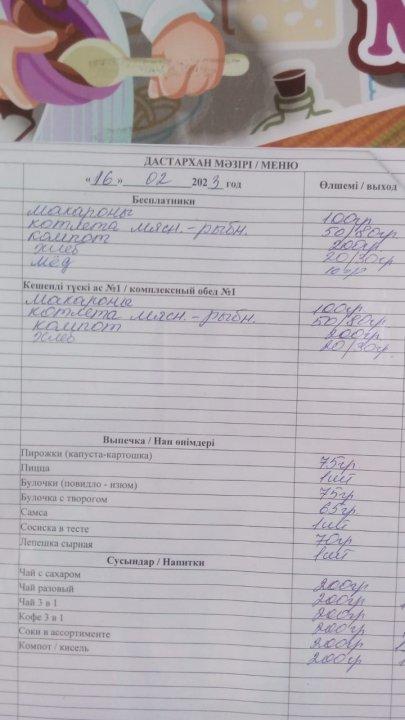 ДАСТАРХАН МӘЗІРІ / МЕНЮ
«16» 02 2023 год Өлшемі / выход
Бесплатники
макароны 100гр
котлета мясн.-рыбн. 50/80гр
компот 200гр
хлеб 20/30гр
мёд 10гр
Кешенді түскі ас №1 / комплексный обед №1
макароны 100гр
котлета мясн.-рыбн. 50/80гр
компот 200гр
хлеб 20/30гр
Выпечка / Нан өнімдері
Пирожки (капуста-картошка) 75гр
Пицца 1шт
Булочки (повидло - изюм) 75гр
Булочка с творогом 65гр
Самса 1шт
Сосиска в тесте 70гр
Лепешка сырная 1шт
Сусындар / Напитки
Чай с сахаром 200гр
Чай разовый 200гр
Чай 3 в 1 200гр
Кофе 3 в 1 200гр
Соки в ассортименте 200гр
Компот / кисель 200гр